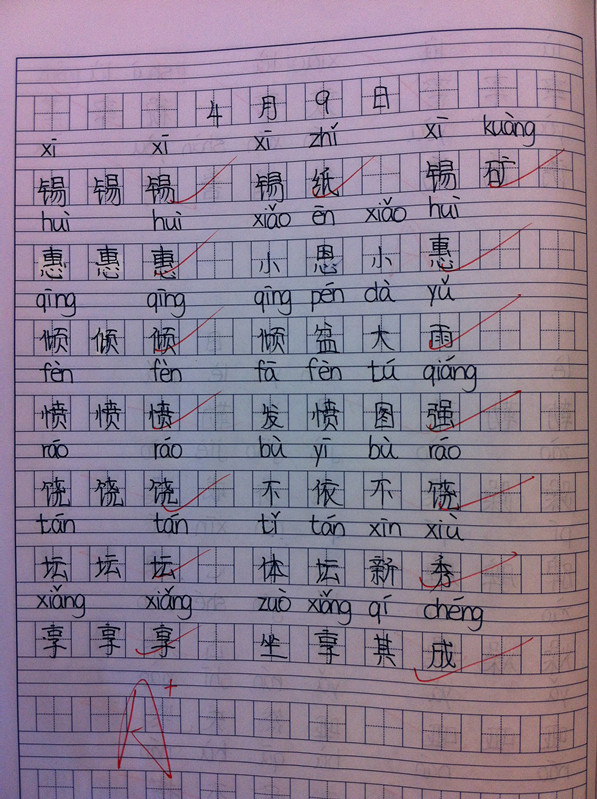 4月9日
xī xī xī zhǐ xī kuàng
锡锡锡 锡纸 锡矿
huì huì xiǎo ēn xiǎo huì
惠惠惠 小恩小惠
qīng qīng qīng pén dà yǔ
倾倾倾 倾盆大雨
fèn fèn fā fèn tú qiáng
愤愤愤 发愤图强
ráo ráo bù yī bù ráo
饶饶饶 不依不饶
tán tán tǐ tán xīn xiù
坛坛坛 体坛新秀
xiǎng xiǎng zuò xiǎng qí chéng
享享享 坐享其成
A+